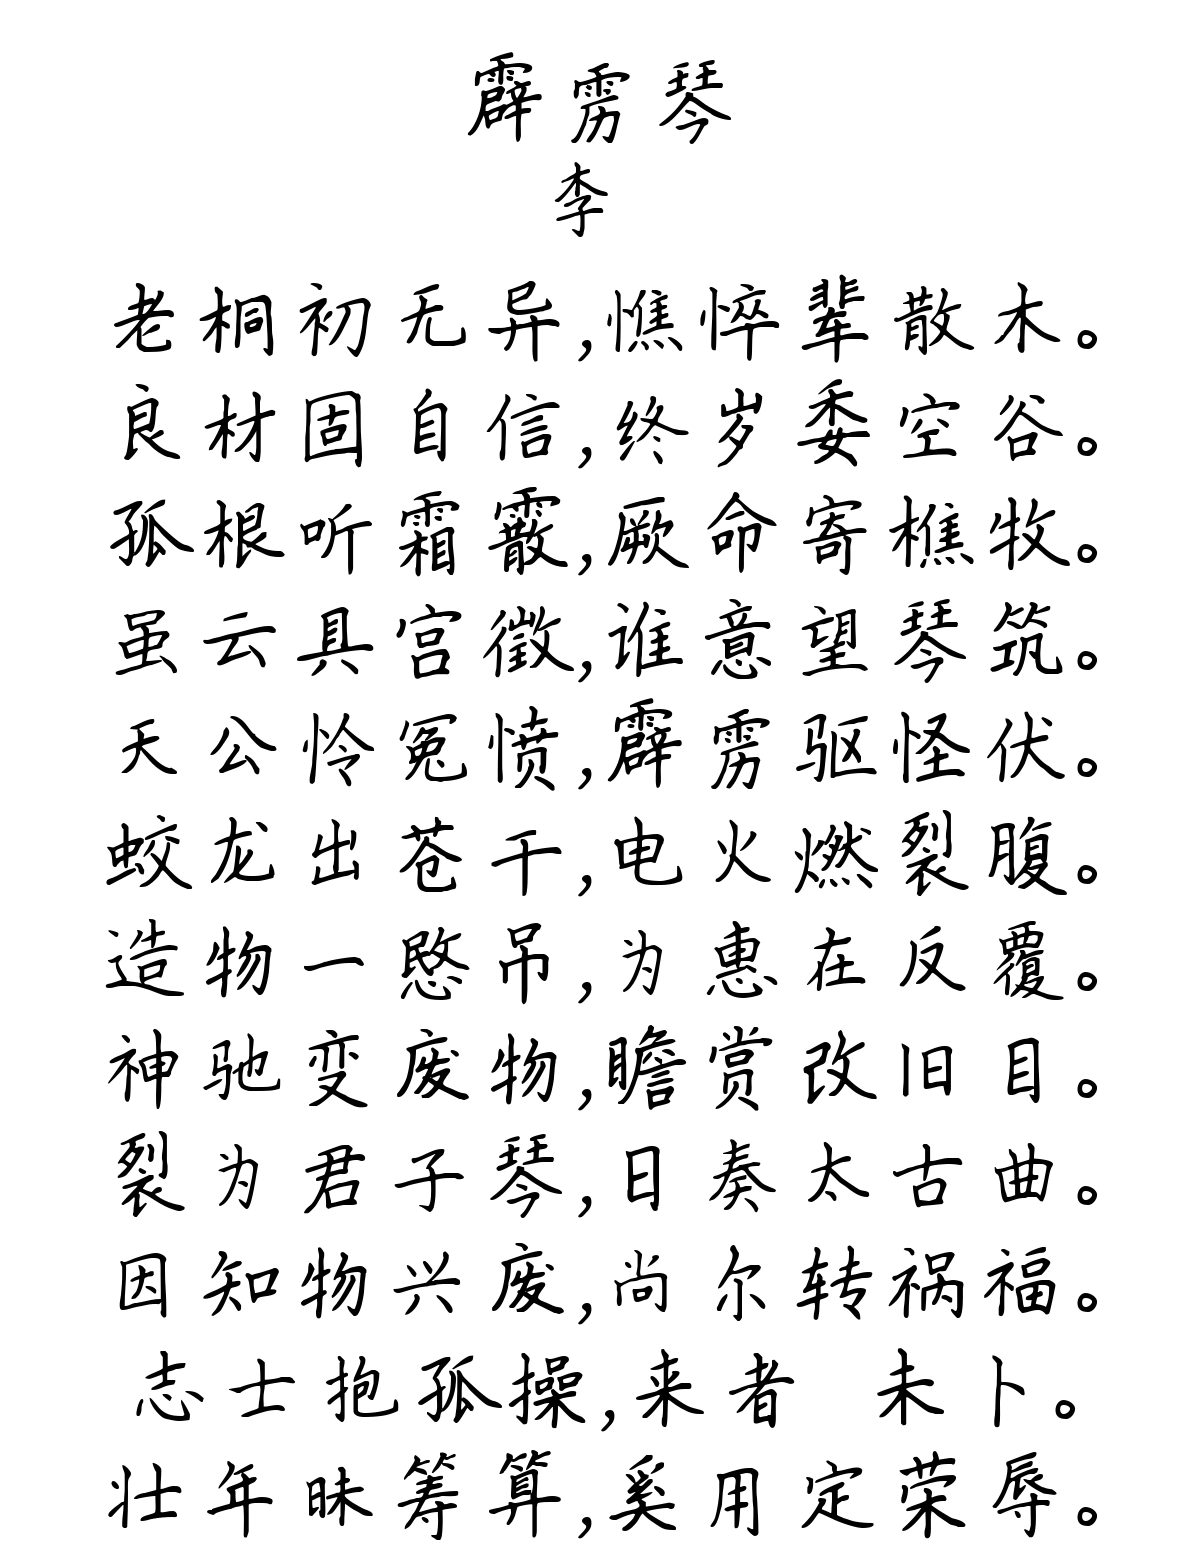 霹雳琴
李
老桐初无异,憔悴辈散木。
良材固自信,终岁委空谷。
孤根听霜霰,厥命寄樵牧。
虽云具宫徵,谁意望琴筑。
天公怜冤愤,霹雳驱怪伏。
蛟龙出苍干,电火燃裂腹。
造物一愍吊,为惠在反覆。
神驰变废物,瞻赏改旧目。
裂为君子琴,日奏太古曲。
因知物兴废,尚尔转祸福。
志士抱孤操,来者 未卜。
壮年昧筹算,奚用定荣辱。